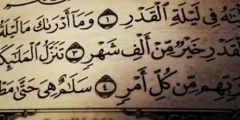 ـنَٰهُ فِى لَيْلَةِ ٱلْقَدْرِ ١ وَمَآ أَدْرَىٰكَ مَا لَيْلَةُ
ٱلْقَدْرِ خَيْرٌ مِّنْ أَلْفِ شَهْرٍ ٣ تَنَزَّلُ ٱلْمَلَٰٓئِكَةُ
رَبِّهِم مِّن كُلِّ أَمْرٍ ٤ سَلَٰمٌ هِىَ حَتَّىٰ